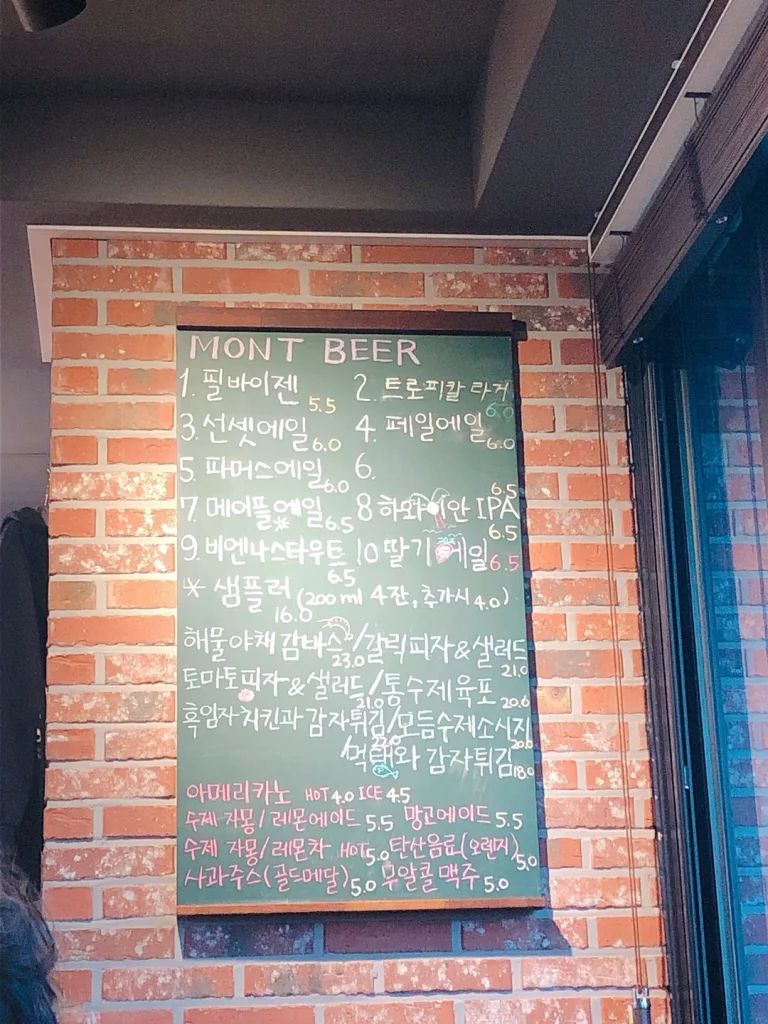 MONT BEER
1. 필바이젠 5.5 2. 트로피칼 라거 6.0
3. 선셋에일 6.0 4. 페일에일 6.0
5. 파머스에일 6.0 6. 6.5
7. 메이플에일 6.5 8 하와이안 IPA 6.5
9. 비엔나스타우트 6.5 10 딸기에일 6.5
* 샘플러 (200ml 4잔, 추가시 4.0) 16.0
해물야채 감바스 23.0 / 갈릭피자 & 샐러드 21.0
토마토피자 & 샐러드 21.0 / 통수제육포 20.0
흑임자치킨과 감자튀김 22.0 / 모듬수제소시지 20.0
먹태와 감자튀김 18.0
아메리카노 HOT 4.0 ICE 4.5
수제 자몽/레몬에이드 5.5 망고에이드 5.5
수제 자몽/레몬차 HOT 5.0 탄산음료(오렌지) 5.0
사과주스(골드메달) 5.0 무알콜 맥주 5.0